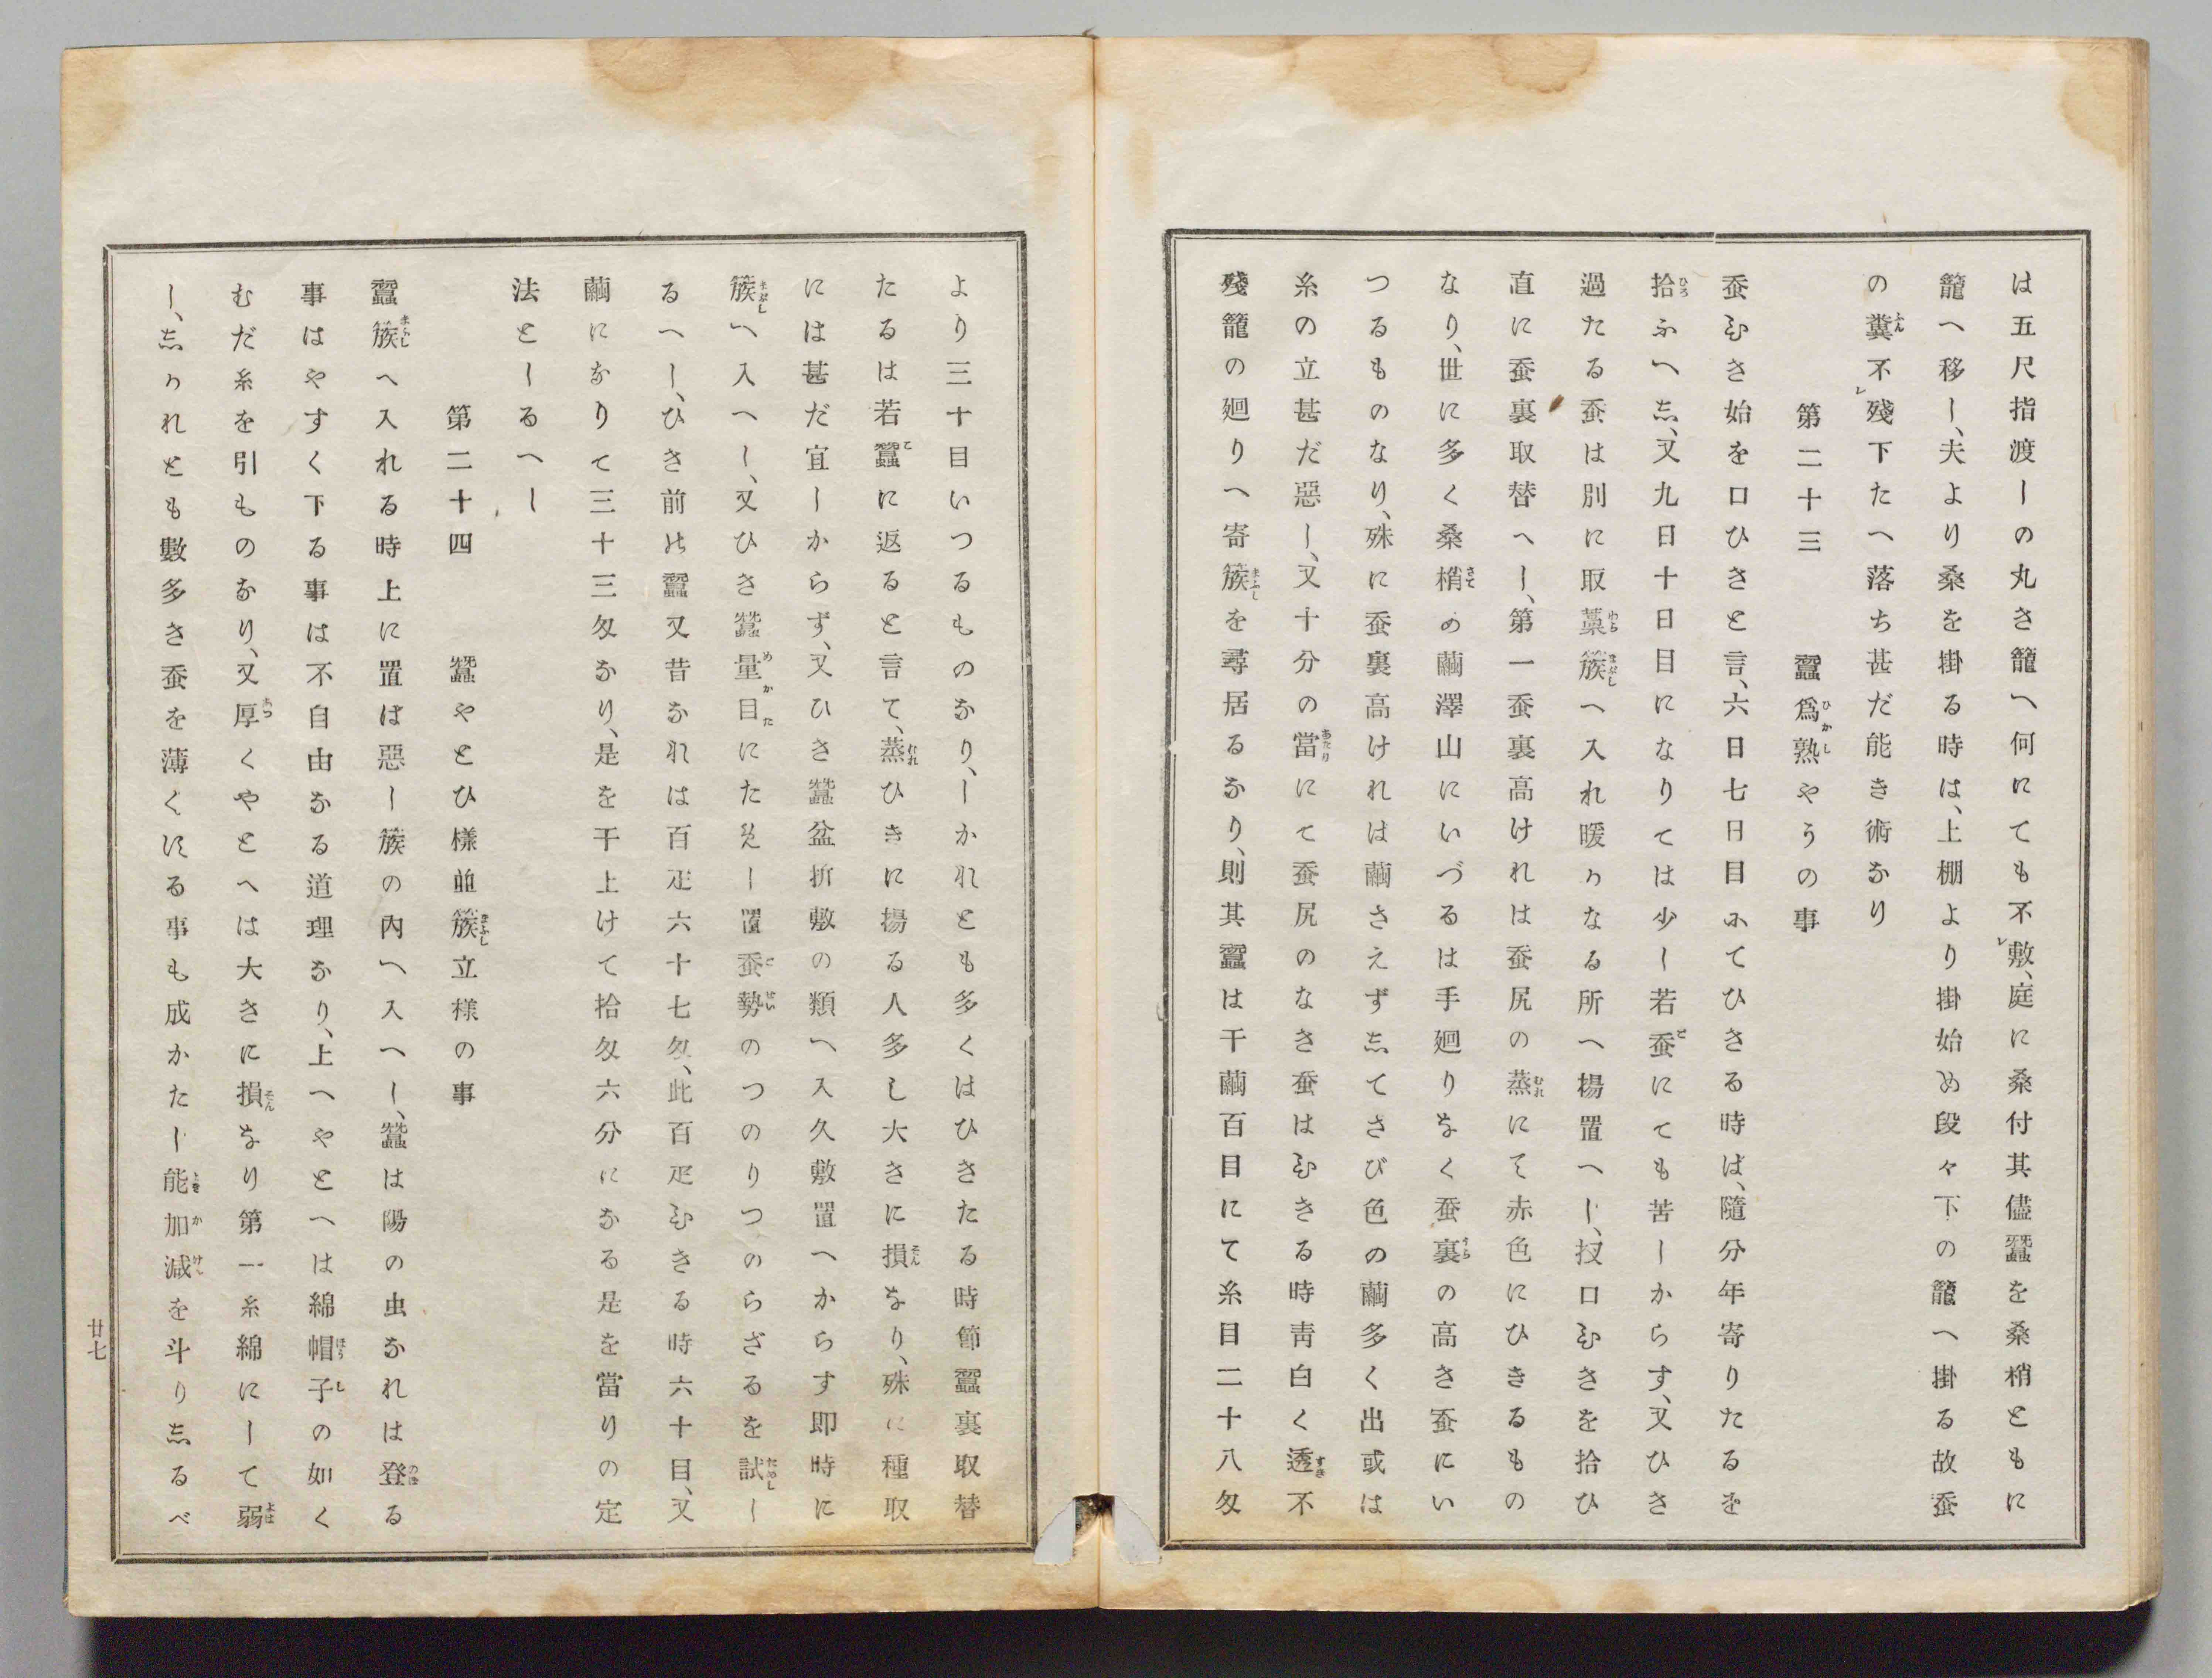 は五尺指渡しの丸き籠へ何にても不㆑敷、庭に桑付其儘蠶を桑梢ともに
籠へ移し、夫より桑を掛る時は、上棚より掛始め段々下の籠へ掛る故蚕
の糞不㆑殘下たへ落ち甚だ能き術なり
第二十三　蠶爲熟やうの事
蚕むさ始を口ひさと言、六日七日目にてひきる時は、隨分年寄りたるを
拾ふへし、又九日十日目になりては少し若蚕にても苦しからす、又ひき
過たる蚕は別に取藁簇へ入れ暖かなる所へ揚置へし、扨口むさを拾ひ
直に蚕裏取替へし、第一蚕裏高けれは蚕尻の蒸にて赤色にひきるもの
なり、世に多く桑梢の繭澤山にいづるは手廻りなく蚕裏の高き蚕にい
つるものなり、殊に蚕裏高けれは繭さえずしてさび色の繭多く出或は
糸の立甚だ惡し、又十分の當にて蚕尻のなき蚕はむきる時靑白く透不
殘籠の廻りへ寄簇を尋居るなり、則其蠶は干繭百目にて糸目二十八匁
より三十目いつるものなり、しかれとも多くはひきたる時節蠶裏取替
たるは若蠶に返ると言て、蒸ひきに揚る人多し大きに損なり、殊に種取
には甚だ宜しからず、又ひき蠶盆折敷の類へ入久敷置へからす即時に
簇へ入へし、又ひき蠶量目にためし置蚕勢のつのりつのらざるを試し
るへし、ひき前の蠶又昔なれは百疋六十七匁、此百疋むきる時六十目、又
繭になりて三十三匁なり、是を干上けて拾匁六分になる是を當りの定
法としるへし
第二十四　蠶やとひ様並簇立様の事
蠶簇へ入れる時上に置ば惡し簇の內へ入へし、蠶は陽の虫なれは登る
事はやすく下る事は不自由なる道理なり、上へやとへは綿帽子の如く
むだ糸を引ものなり、又厚くやとへは大きに損なり第一糸綿にして弱
し、しかれとも數多き蚕を薄くにる事も成かたし能加減を斗りしるべ
廿七